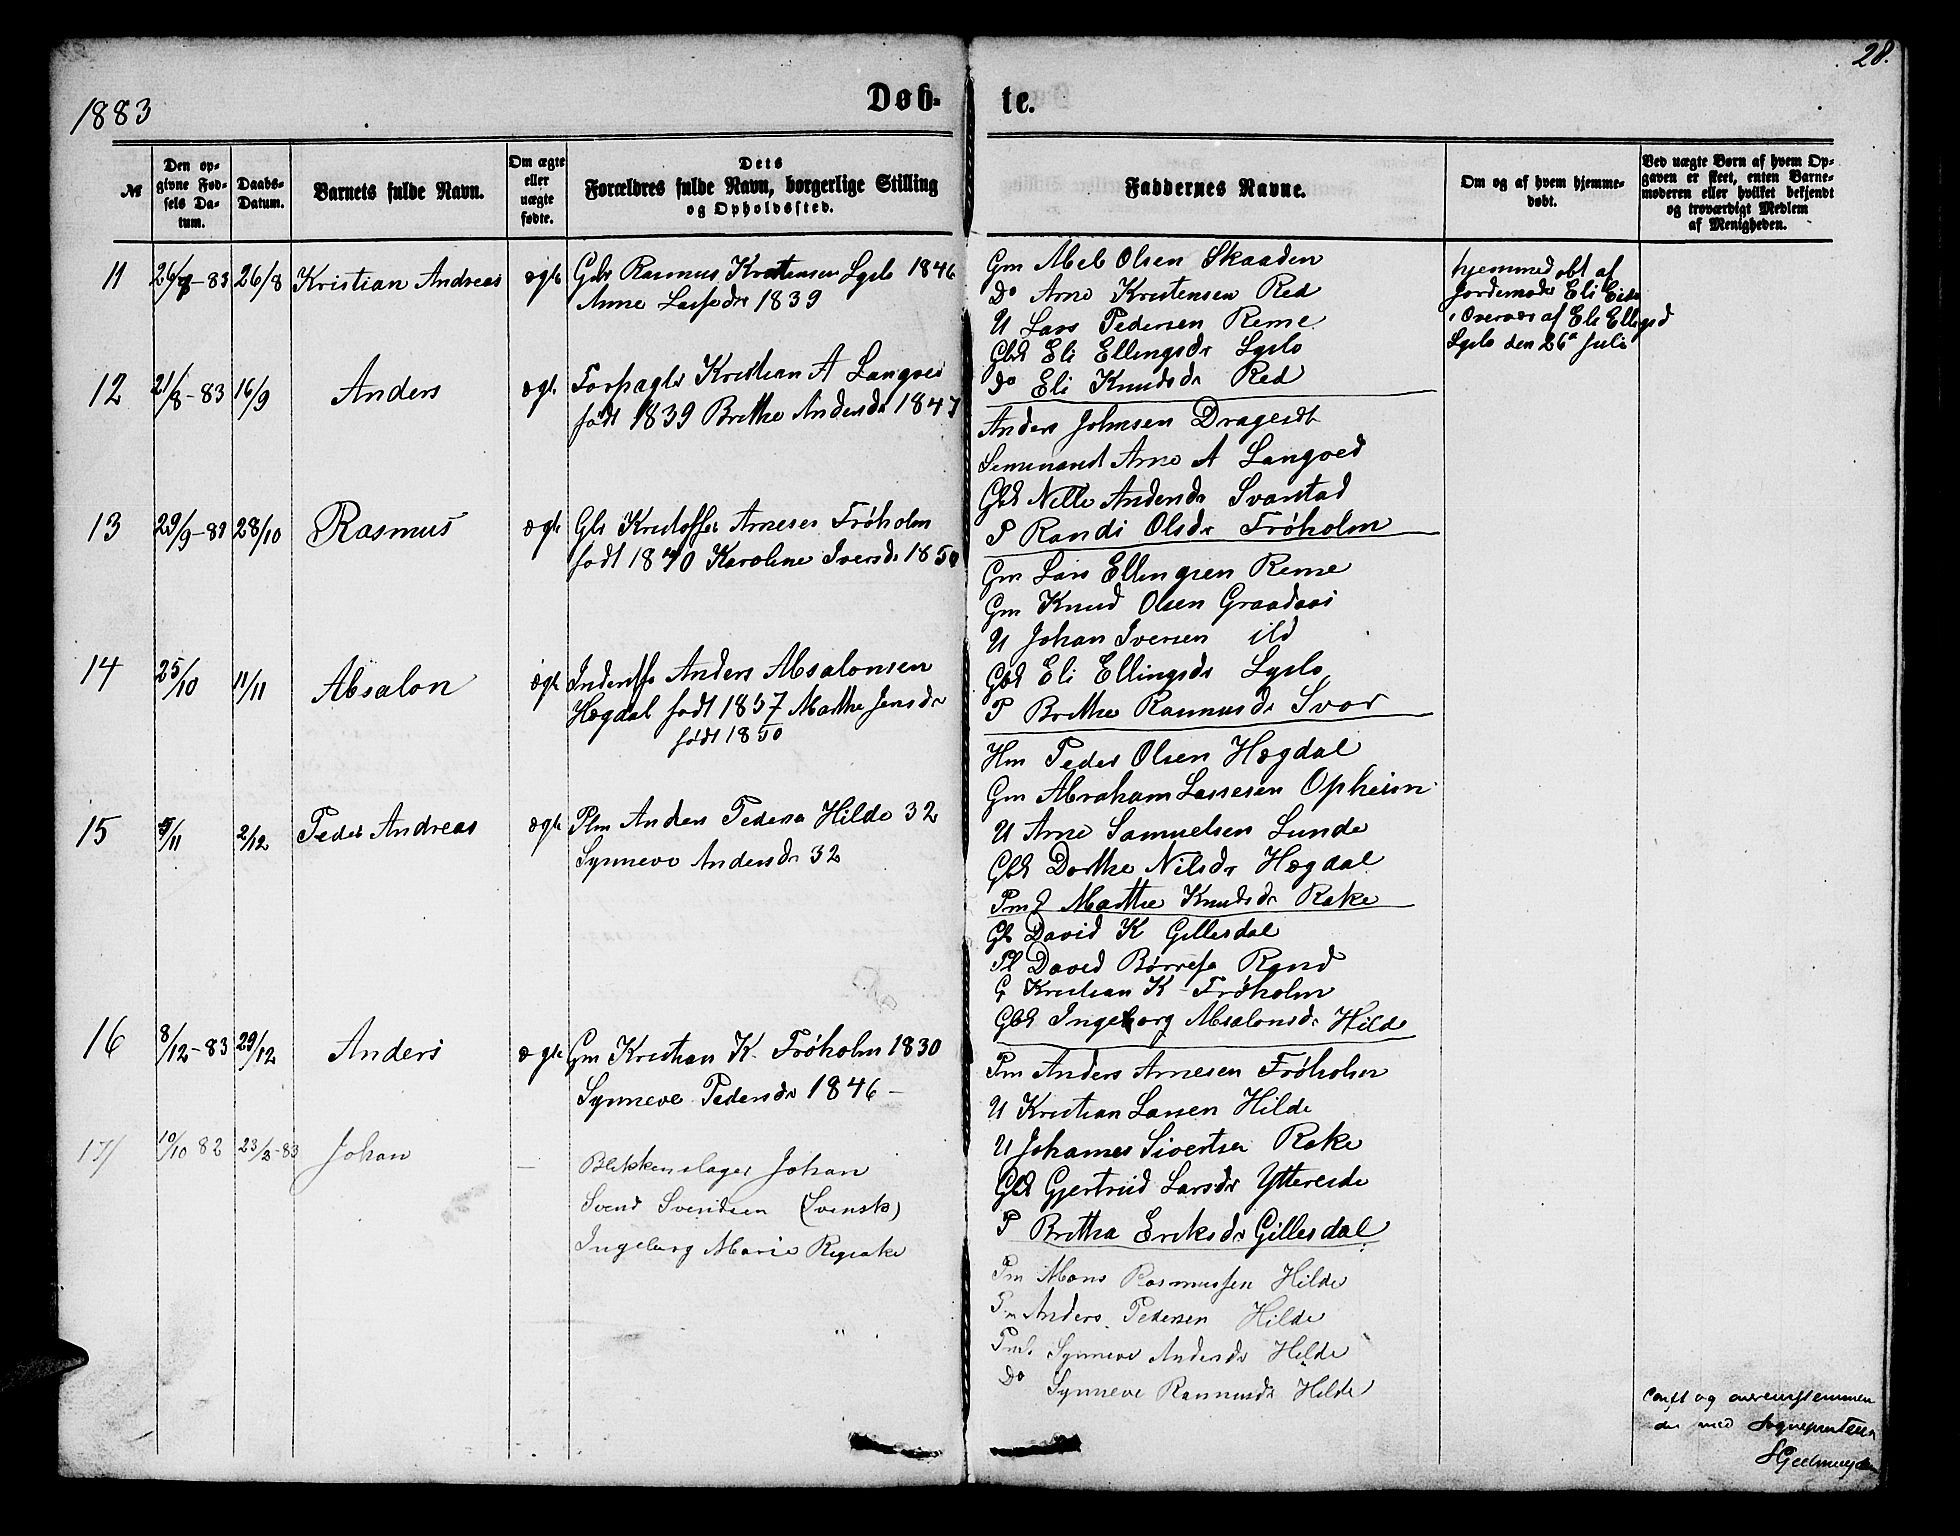 28.
1883
Døb- te.
№
Den opgivne Fødsels Datum.
Daabs-Datum.
Barnets fulde Navn.
Om ægte eller uægte fødte.
Dets Forældres fulde Navn, borgerlige Stilling og Opholdssted.
Faddernes Navne.
Om og af hvem hjemmedøbt.
Ved uægte Børn af hvem Opgaven er skeet, enten Barnemoderen eller hvilket bekjendt og troværdigt Medlem af Menigheden.
11 26/7-83 26/8 Kristian Andreas ægte Gbr Rasmus Kristensen Lyslo 1846
Anne Lassedr 1839
Gm Abel Olsen Skaaden
Do Arne Kristensen Red
U Lars Pedersen Reme
Gbd Eli Ellingsdr Lyslo
Do Eli Knudsdr Red
hjemmedøbt af
Jordemoder Eli Eide
i Overvær af Eli Ellingsd
Lyslo den 26de Juli
12 21/8-83 16/9 Anders ægte Forpagter Kristian A Langved
født 1839 Brithe Andersdr 1847
Anders Johnsen Drageidt
Seminarist Arne A Langved
Gbd Nille Andersdr Svarstad
P Randi Olsdr Frøholm
13 29/9-83 28/10 Rasmus ægte Gbr Kristoffer Arnesen Frøholm
født 1840 Karoline Iversdr 1850
Gm Lars Ellingsen Reme
Gm Knud Olsen Graadaas
U Johan Iversen ild
Gbd Eli Ellingsdr Lyslo
P Brithe Rasmusdr Svor
14 25/10 11/11 Absalon ægte Inderst Anders Absalonsen
Hegdal født 1857 Marthe Jensdr
født 1850
Hm Peder Olsen Hegdal
Gm Abraham Lassesen Opheim
U Arne Samuelsen Lunde
Gbd Dorthe Nilsdr Hegdal
Pmd Marthe Knudsdr Rake
15 9/11 2/12 Peder Andreas ægte Plm Anders Pedersen Hilde 32
Synneve Andersdr 32
Gb David K Gillesdal
Pl David Børresen Rand
G Kristian K Frøholm
Gbd Ingeborg Absalonsdr Hilde
16 8/12-83 29/12 Anders ægte Gm Kristian K. Frøholm 1830
Synneve Pedersdr 1846 -
Pm Anders Arnesen Frøholm
U Kristian Larsen Hilde
U Johannes Sivertsen Rake
Gbd Gjertrud Larsdr Ytreeide
P Brithe Eriksdr Gillesdal
17/ 10/10 82 23/3-83 Johan — Blikkenslager Johan
Svend Svendsen (Svensk)
Ingeborg Marie
Pm Mons Rasmussen Hilde
Pm Anders Pedersen Hilde
Pmd. Synneve Andersdr Hilde
Do Synneve Rasmusdr Hilde
Conft og overensstemmen
de med Sognepræsten